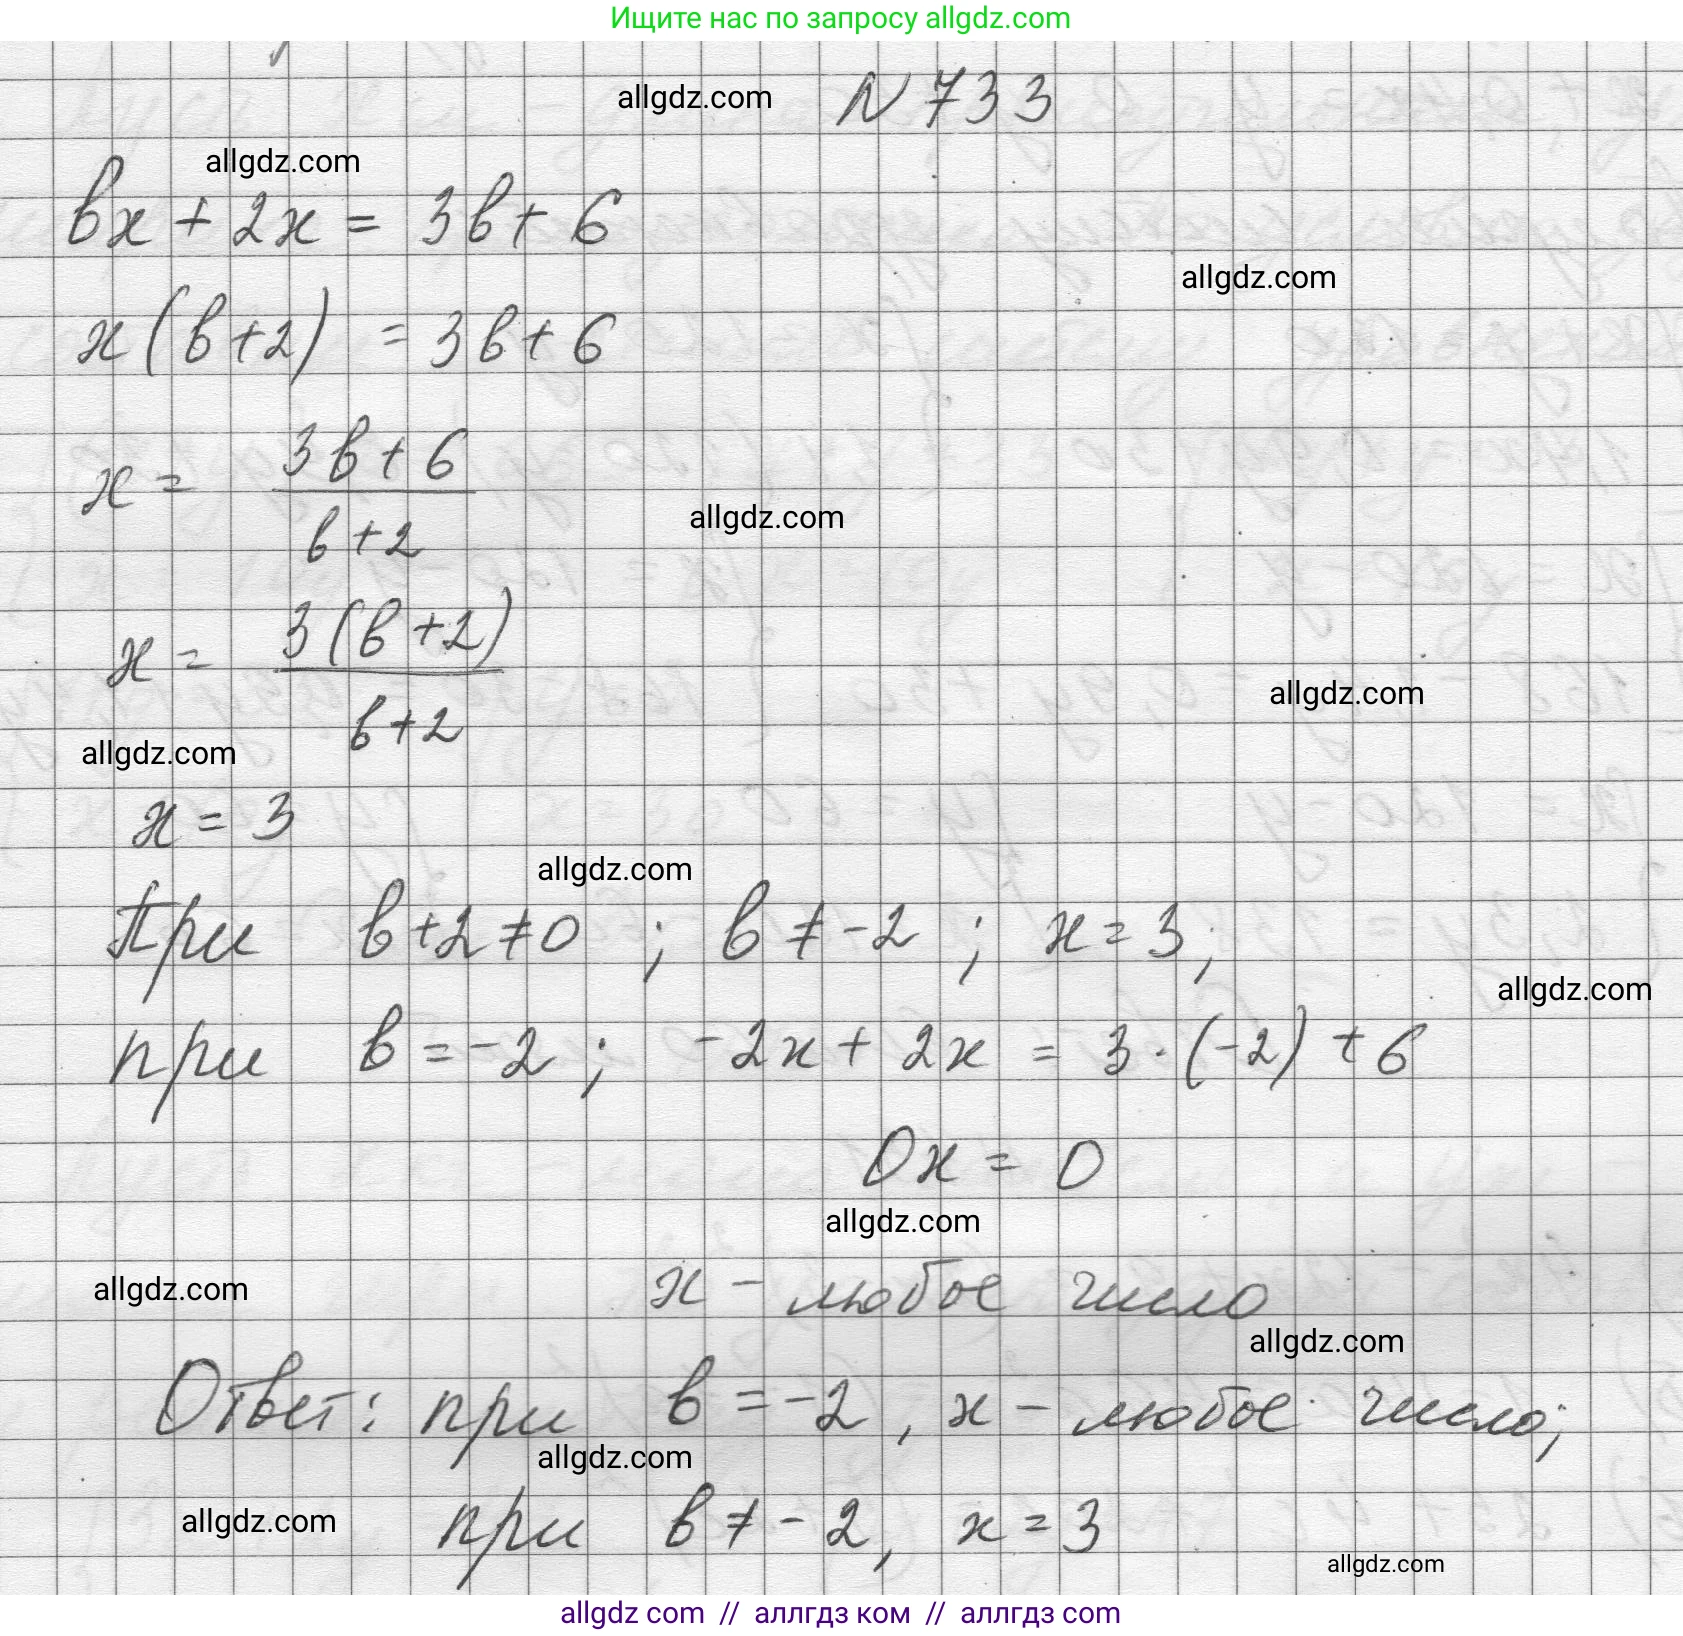 Ищите нас по запросу allgdz.com
allgdz.com N 733
allgdz.com
bx + 2x = 3b + 6
allgdz.com
x(b+2) = 3b + 6
x = \frac{3b + 6}{b + 2}
allgdz.com
x = \frac{3(b+2)}{b+2}
allgdz.com
allgdz.com
x = 3
allgdz.com
При b+2≠0 ; b ≠ -2 ; x = 3;
allgdz.com
при b = -2 ; -2x + 2x = 3 · (-2) + 6
0x = 0
allgdz.com
allgdz.com
x - любое число
allgdz.com
Ответ: при b = -2 , x - любое число;
allgdz.com
allgdz.com
при b ≠ -2, x = 3
allgdz.com
allgdz com // аллгдз ком // аллгдз com